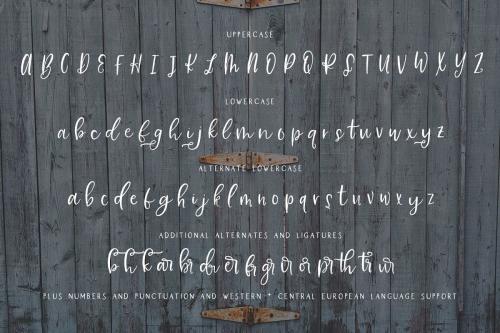 UPPERCASE
A B C D E F H I J K L M N O P Q R S T U V W X Y Z
LOWERCASE
a b c d e f g h i j k l m n o p q r s t u v w x y z
ALTERNATE LOWERCASE
a b c d e f g h i j k l m n o p q r s t u v w x y z
ADDITIONAL ALTERNATES AND LIGATURES
PLUS NUMBERS AND PUNCTUATION AND WESTERN + CENTRAL EUROPEAN LANGUAGE SUPPORT